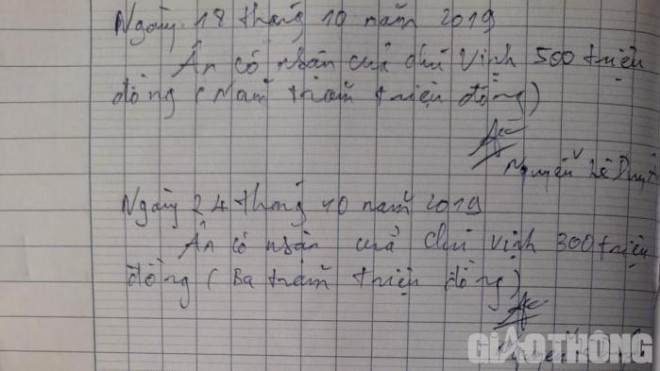 Ngày 18 tháng 10 năm 2019
Ân có nhận của chú Vịnh 500 triệu
đồng (Năm trăm triệu đồng)
Nguyễn Lê
Ngày 24 tháng 10 năm 2019
Ân có nhận của chú Vịnh 300 triệu
đồng (Ba trăm triệu đồng)
Nguyễn
GIAOTHÔNG